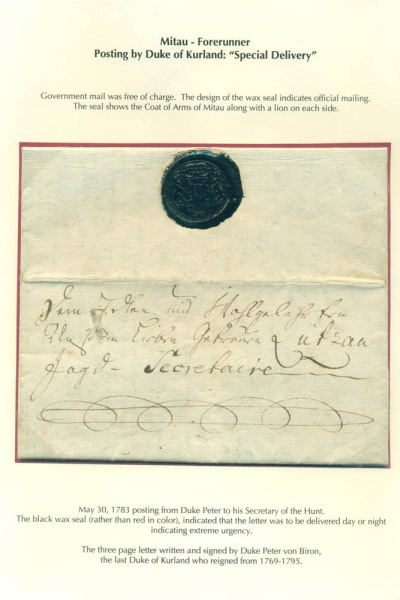 Mitau - Forerunner
Posting by Duke of Kurland: “Special Delivery”
Government mail was free of charge. The design of the wax seal indicates official mailing.
The seal shows the Coat of Arms of Mitau along with a lion on each side.
Dem Edlen und
Lieben Getreuen
Jagd - Secretaire
May 30, 1783 posting from Duke Peter to his Secretary of the Hunt.
The black wax seal (rather than red in color), indicated that the letter was to be delivered day or night
indicating extreme urgency.
The three page letter written and signed by Duke Peter von Biron,
the last Duke of Kurland who reigned from 1769-1795.